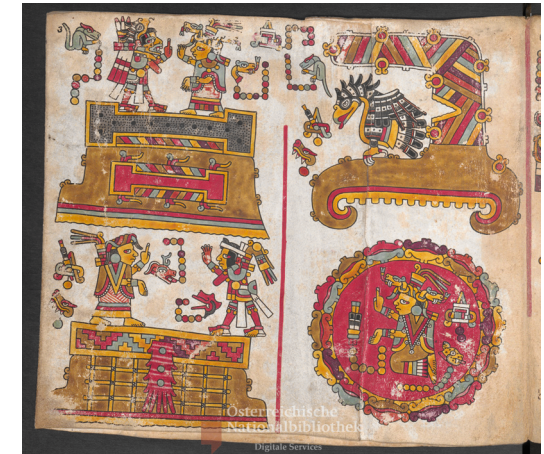 Österreichische
Nationalbibliothek
Digitale Services